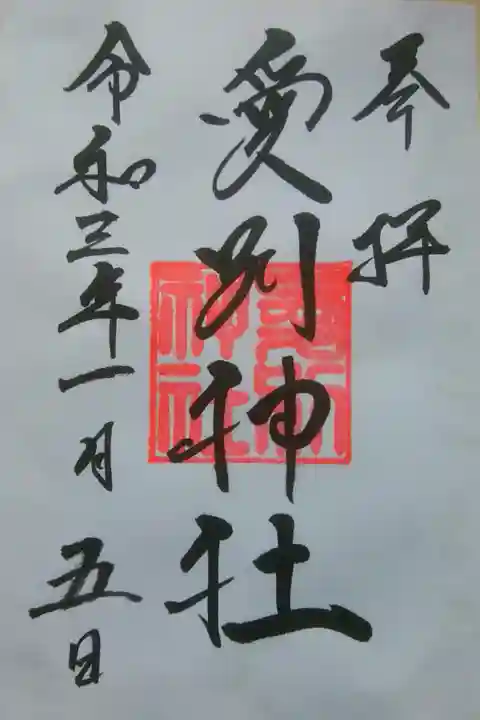 奉拝
愛別神社
愛別神社
令和三年一月五日